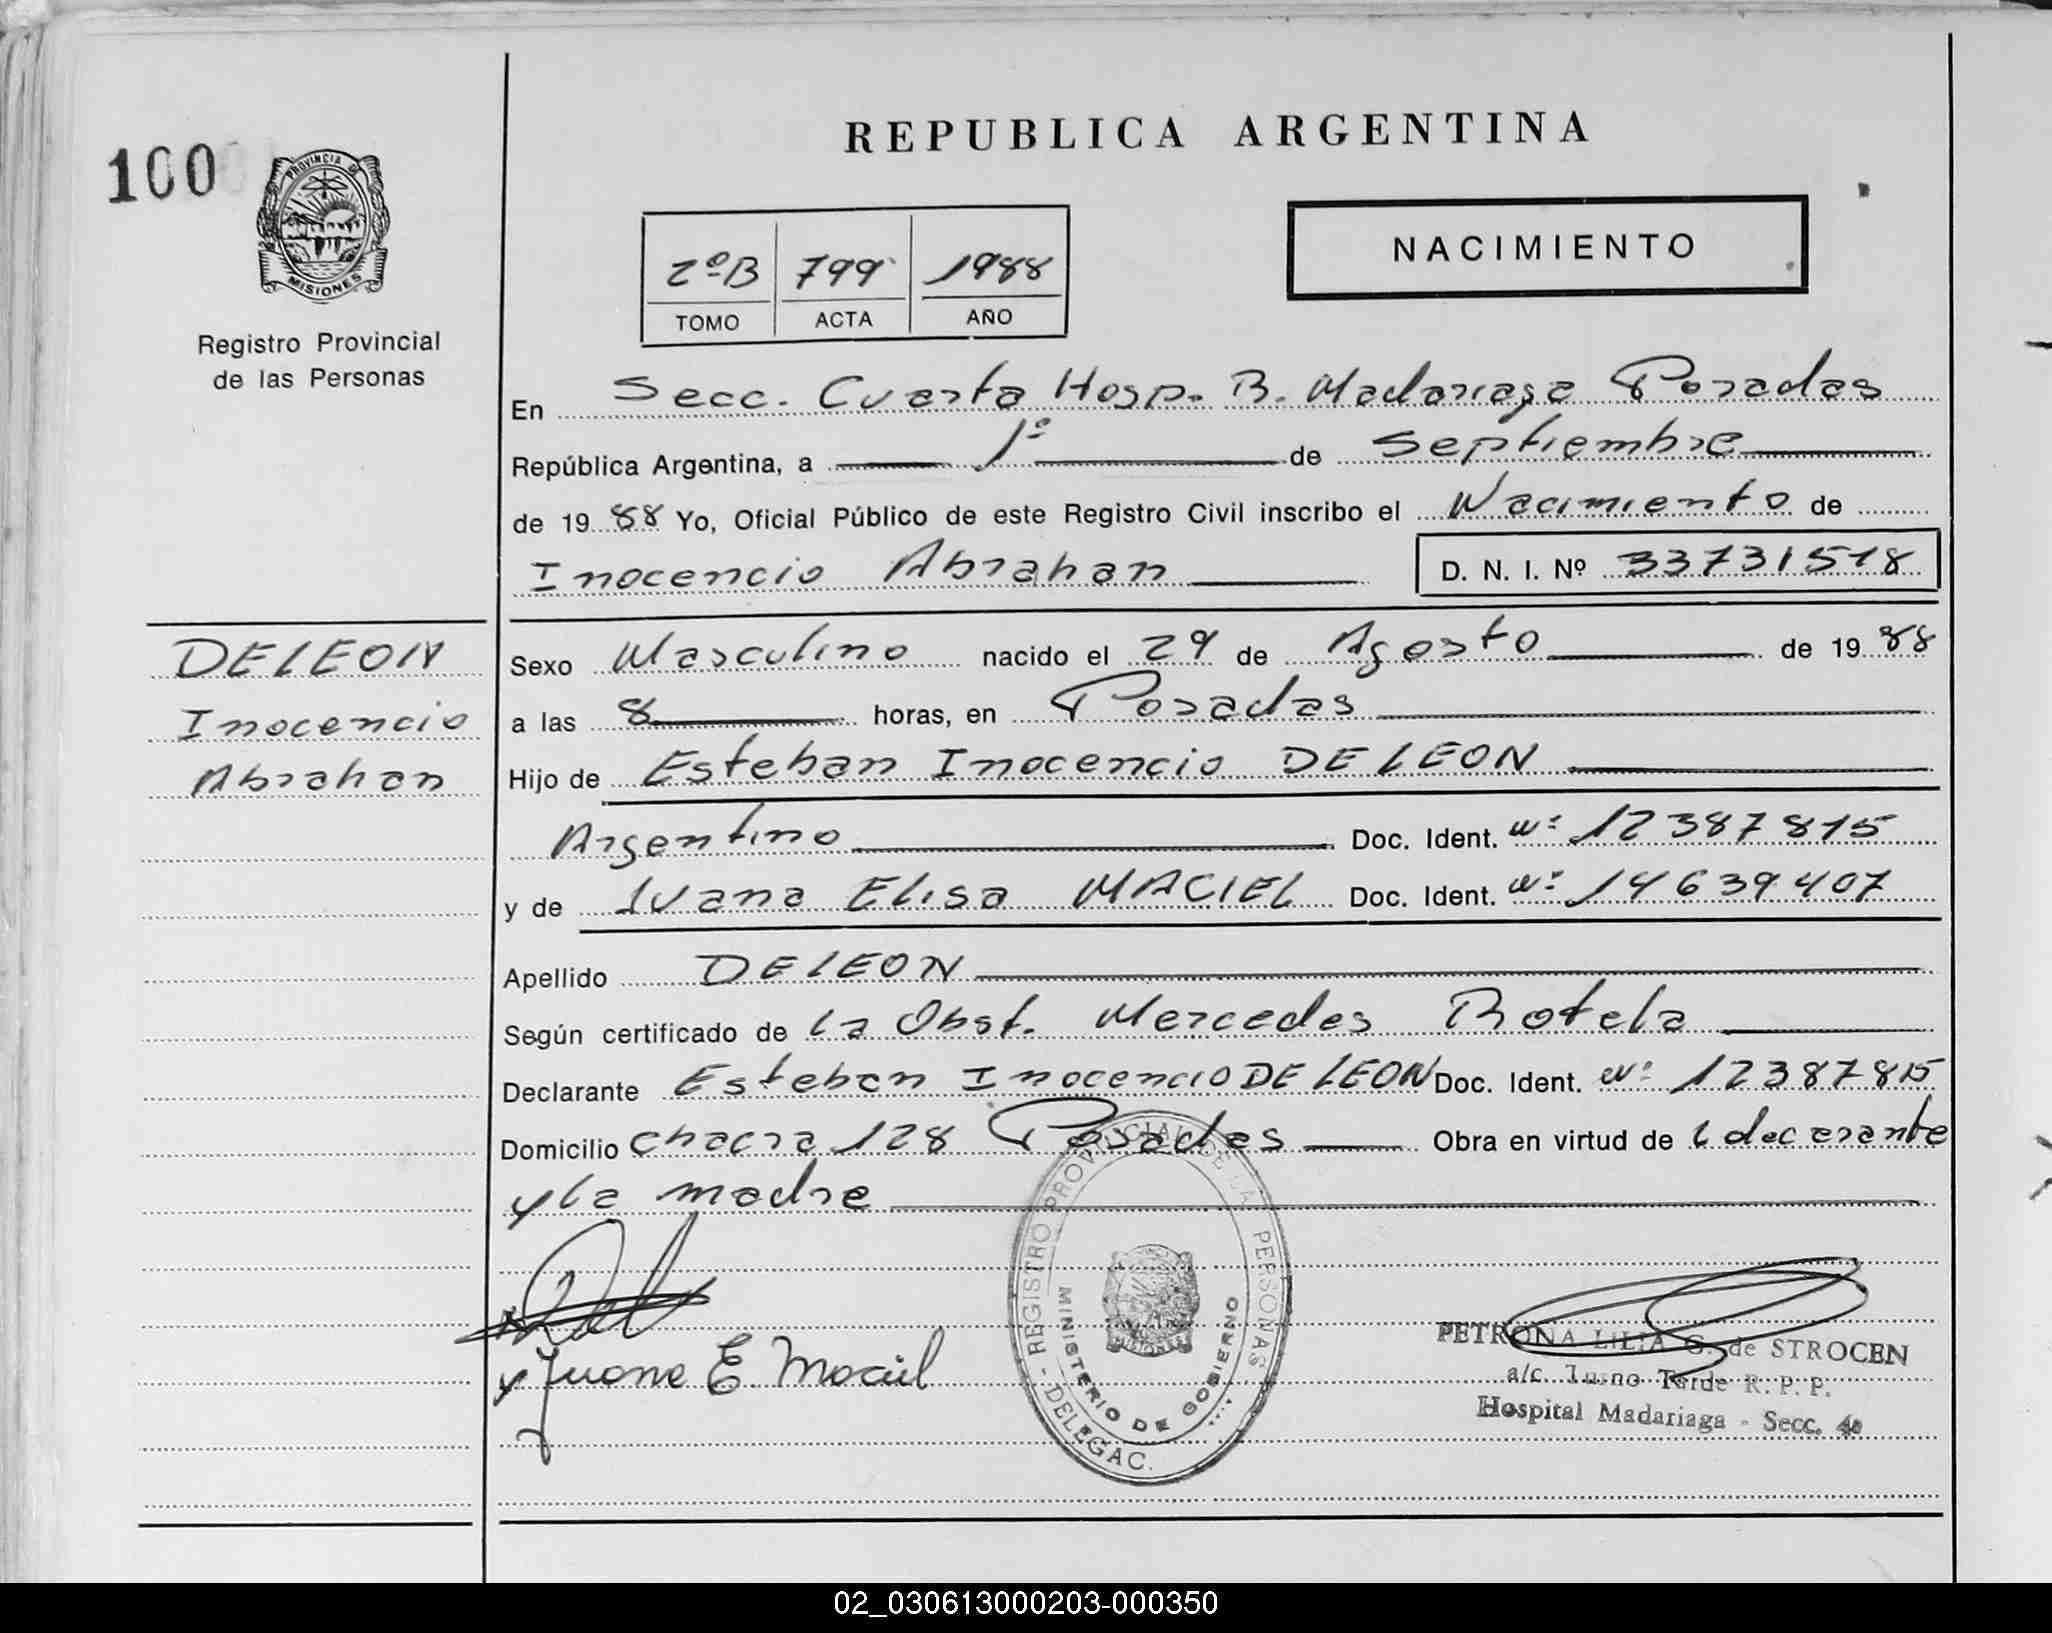 REPUBLICA ARGENTINA
100
PROVINCIA DE
MISIONES
Registro Provincial
de las Personas
2ºB 799 1988
TOMO ACTA AÑO
NACIMIENTO
En Secc. Cuarta Hosp. B. Madariaga Posadas
República Argentina, a 1º de Septiembre
de 1988 Yo, Oficial Público de este Registro Civil inscribo el Nacimiento de
Inocencio Abrahan D. N. I. Nº 33731518
DELEON
Inocencio
Abrahan
Sexo Masculino nacido el 29 de Agosto de 1988
a las 8 horas, en Posadas
Hijo de Esteban Inocencio DE LEON
Argentino Doc. Ident. Nº 12387815
y de Juana Elisa MACIEL Doc. Ident. Nº 14639407
Apellido DELEON
Según certificado de la Obst. Mercedes Rotela
Declarante Esteban Inocencio DE LEON Doc. Ident. Nº 12387815
Domicilio chacra 128 Posadas Obra en virtud de l decarante
y la madre
REGISTRO PROVINCIAL DE LAS PERSONAS - DELEGAC.
MINISTERIO DE GOBIERNO
Juana E. Maciel
PETRONA LILIA G. de STROCEN
a/c. Turno Tarde R. P. P.
Hospital Madariaga - Secc. 4a
02_030613000203-000350